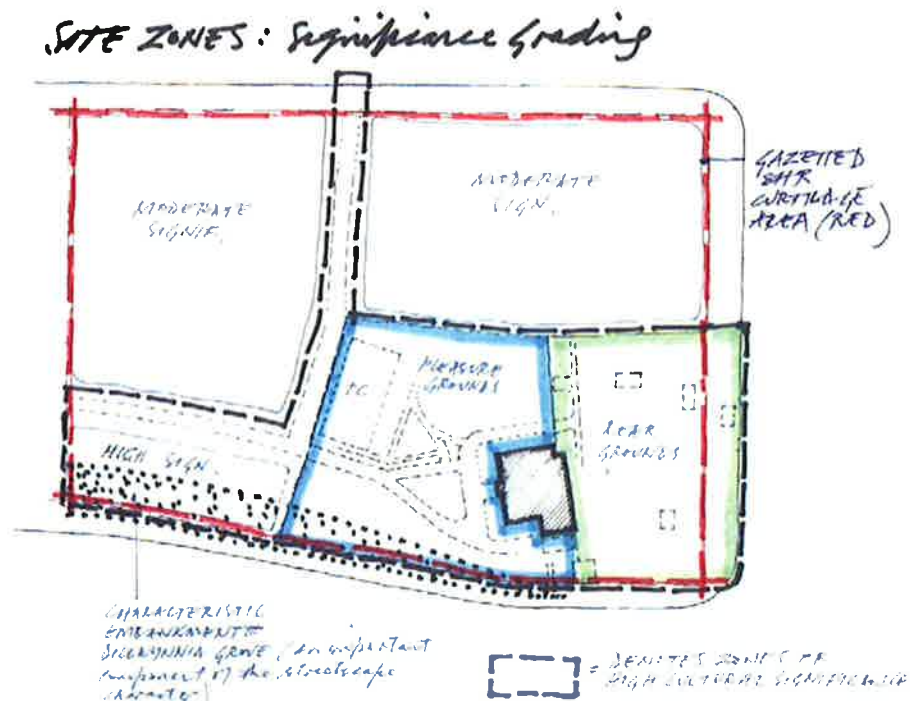 SITE ZONES: Significance Grading
MODERATE
SIGNIF.
MODERATE
SIGN.
GAZETTED
SHR
CURTILAGE
AREA (RED)
PLEASURE
GROUNDS
T.C.
REAR
GROUNDS
HIGH SIGN.
CHARACTERISTIC
EMBANKMENT
GROVE (an important
component of the streetscape
character)
= DENOTES ZONES OF
HIGH CULTURAL SIGNIFICANCE